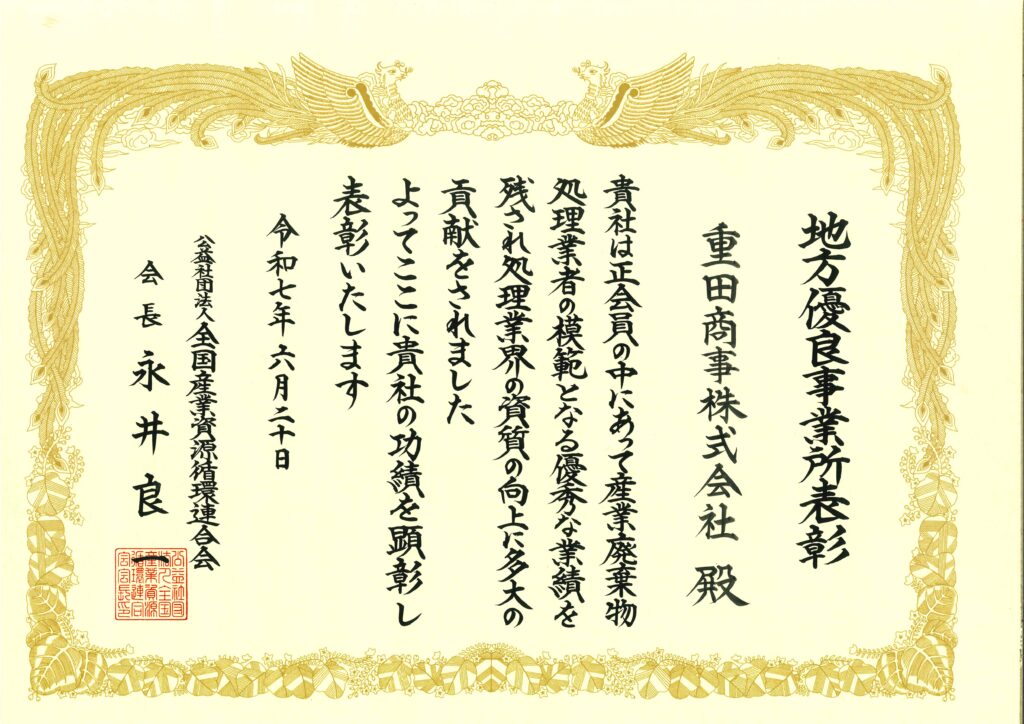 地方優良事業所表彰
重田商事株式会社 殿
貴社は正会員の中にあって産業廃棄物
処理業者の模範となる優秀な業績を
残され処理業界の資質の向上に多大の
貢献をされました
よってここに貴社の功績を顕彰し
表彰いたします
令和七年 六月二十日
公益社団法人全国産業資源循環連合会
会長 永井良一